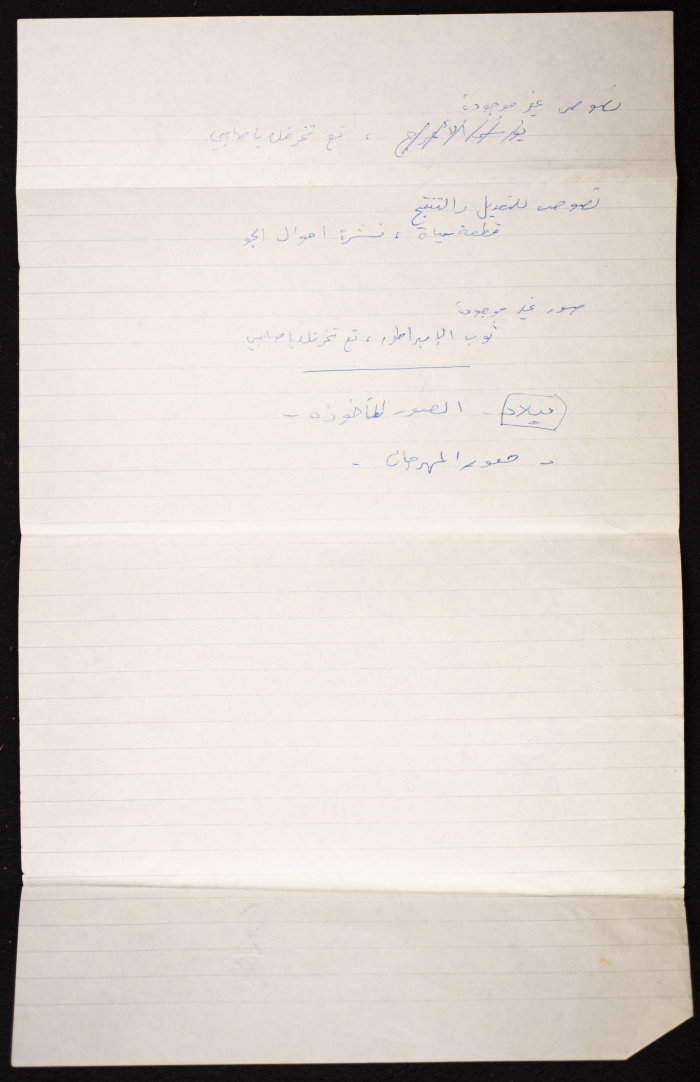 نصوص غير موجودة
، تع تخرفك يا صاحبي
نصوص للتعديل والتنقيح
قطعة حياة ، نشرة احوال الجو
صور غير موجودة
ثوب الإمبراطور ، تع تخرفك يا صاحبي
ميلاد - الصور المأخوذة -
- صور المهرجان -